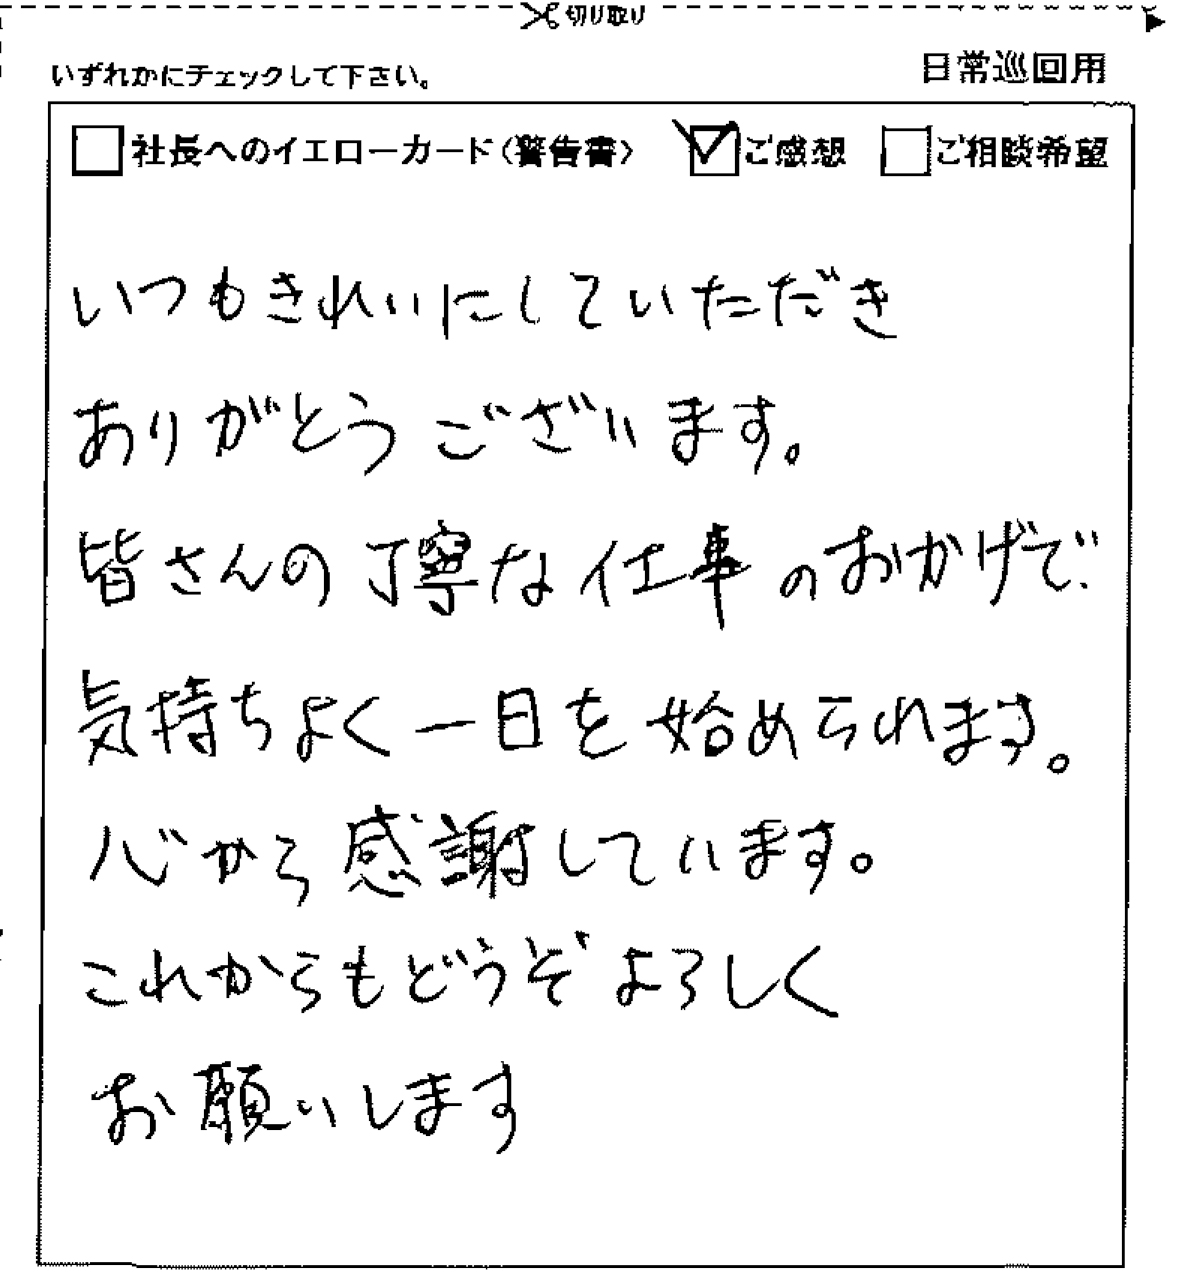 切り取り
いずれかにチェックして下さい。 日常巡回用
社長へのイエローカード(警告書) ご感想 ご相談希望
いつもきれいにしていただき
ありがとうございます。
皆さんの丁寧な仕事のおかげで、
気持ちよく一日を始められます。
心から感謝しています。
これからもどうぞよろしく
お願いします